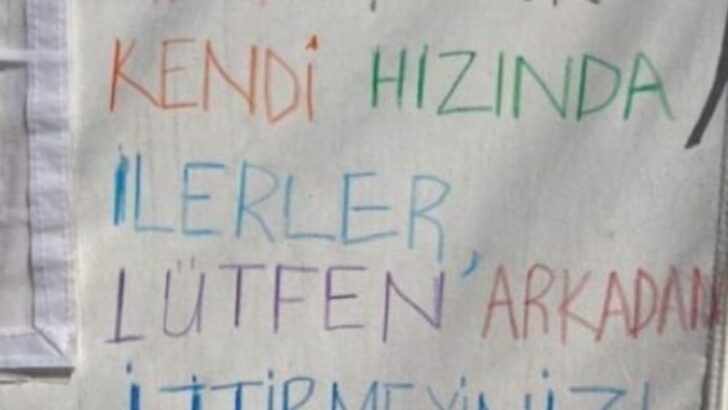 KENDİ HIZINDA
İLERLER,
LÜTFEN ARKADAN
İTTİRMEYİNİZ!